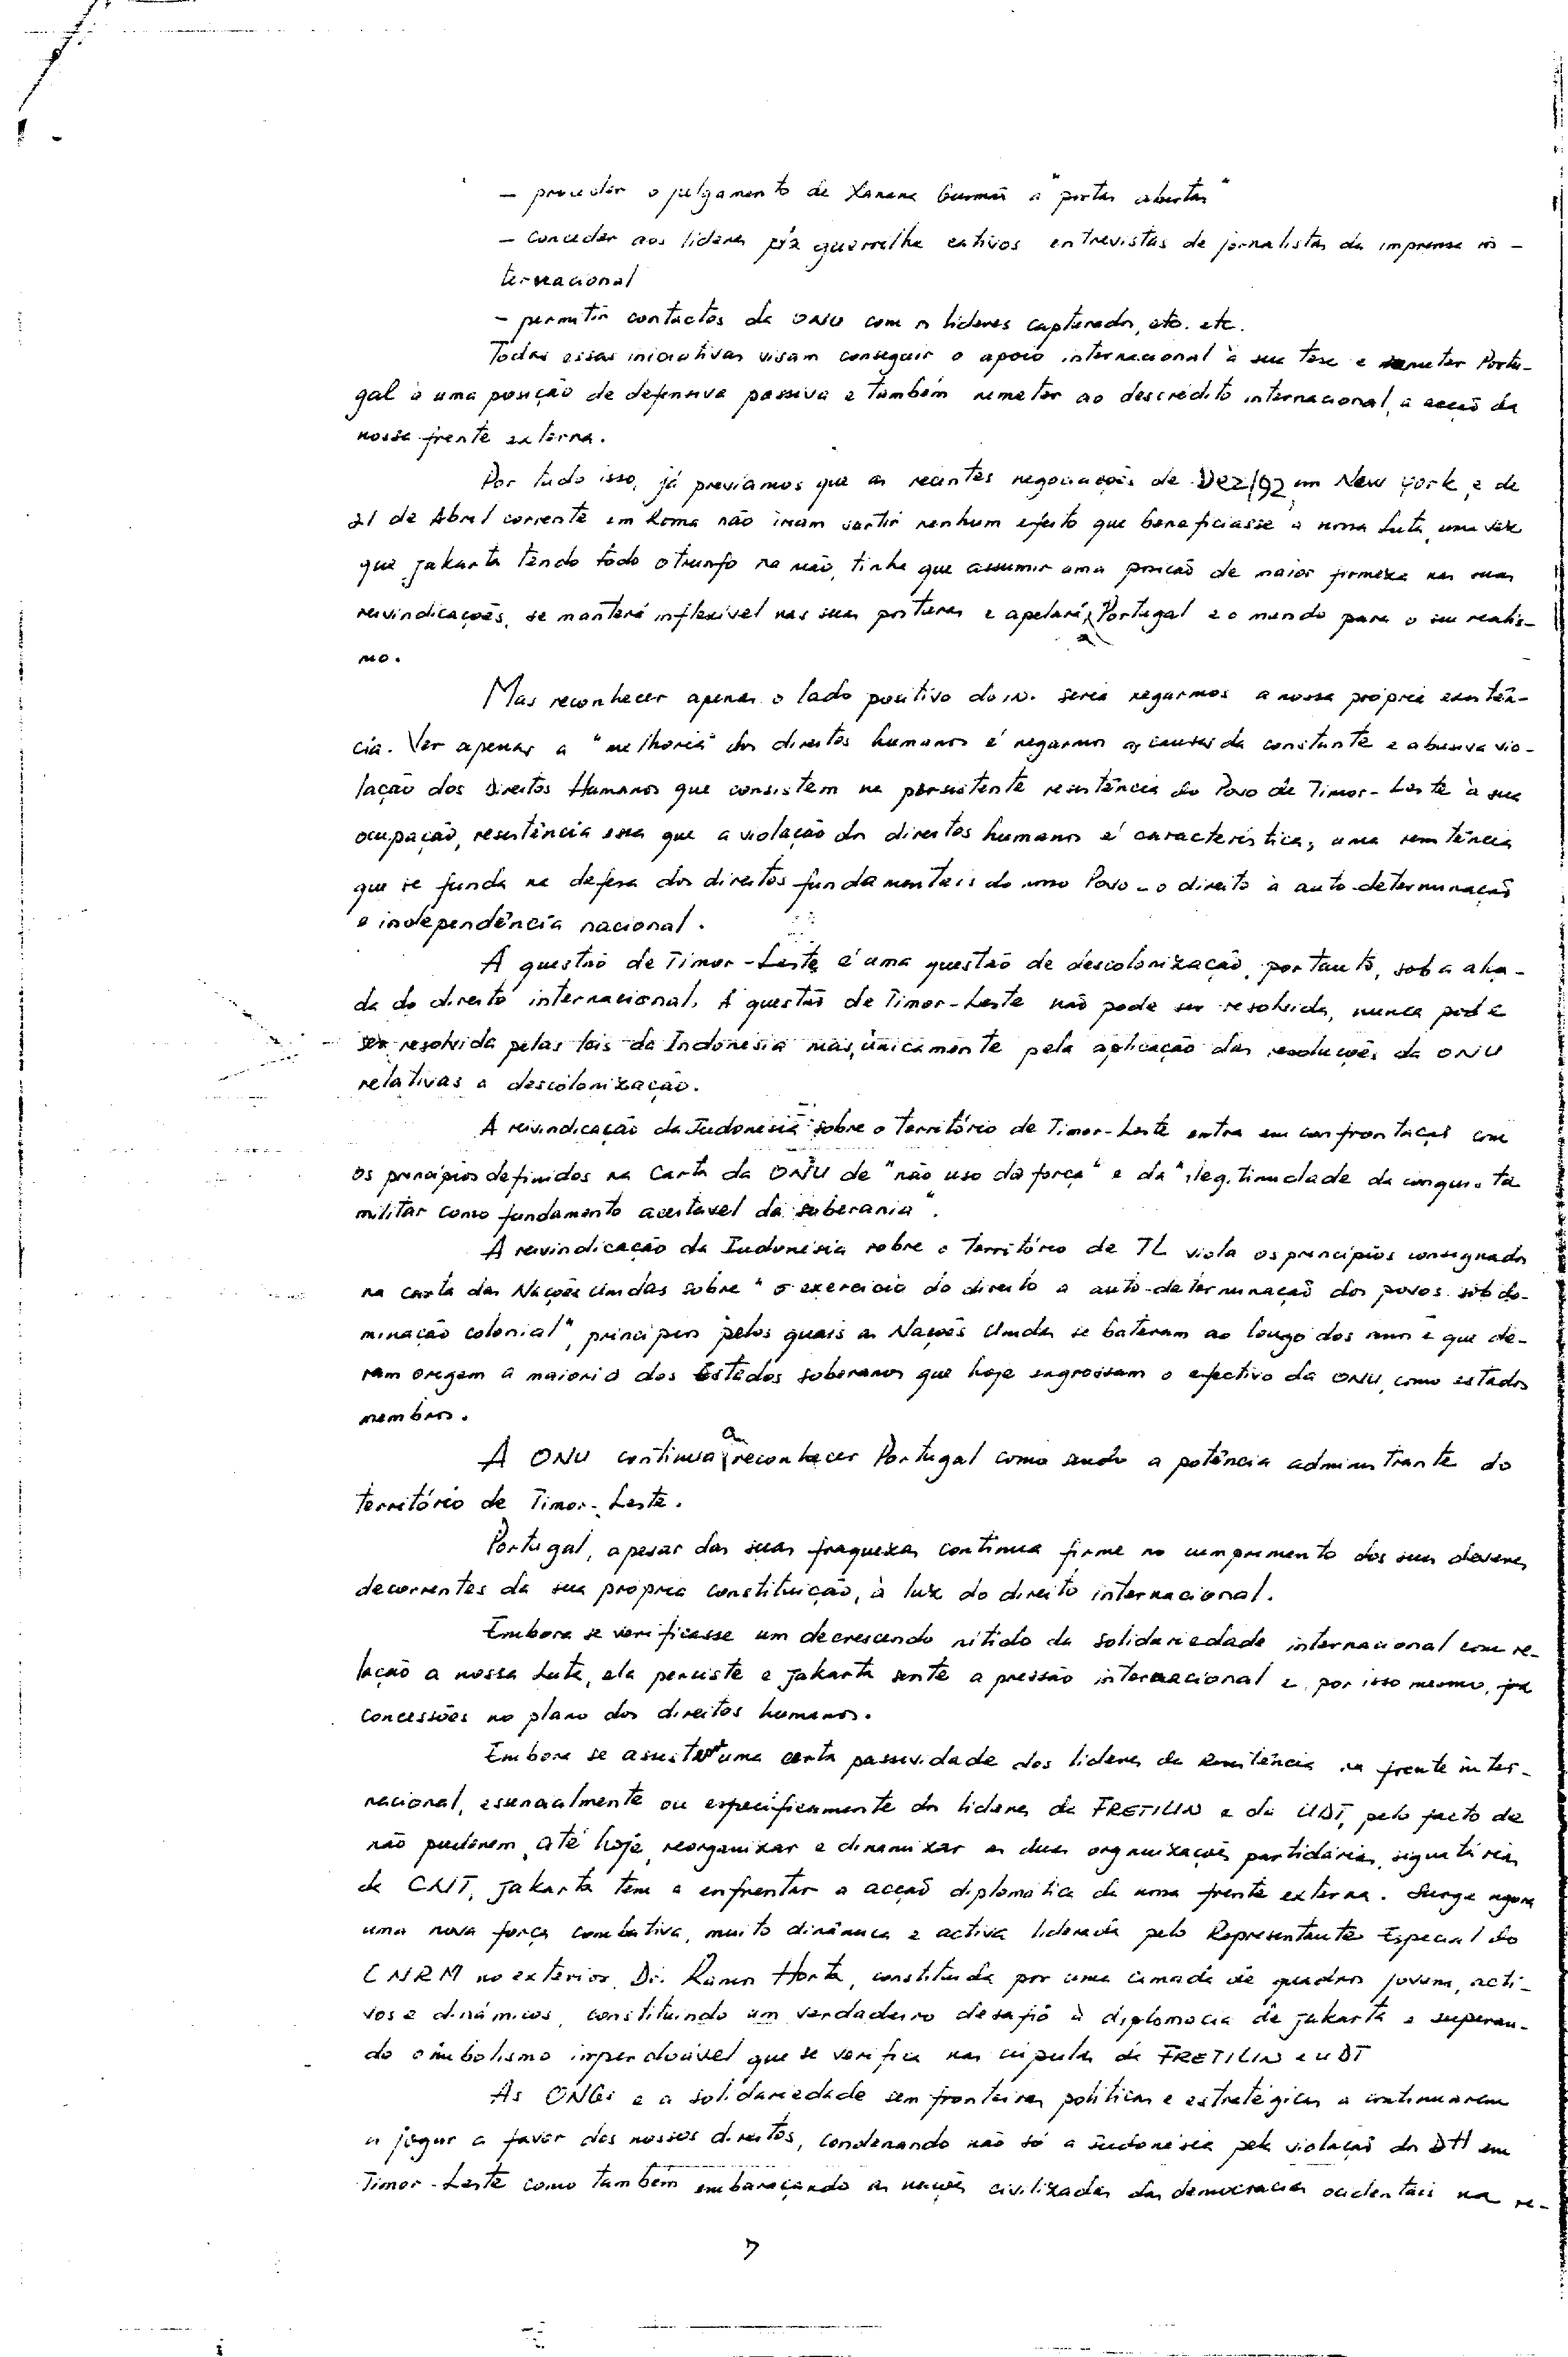 – proceder o julgamento de Xanana Gusmão a "portas abertas"
– conceder aos líderes guerrilha cativos entrevistas de jornalistas da imprensa in-
ternacional
– permitir contactos da ONU com os líderes capturados, etc. etc.
Todas essas iniciativas visam conseguir o apoio internacional à sua tese e remeter Portu-
gal a uma posição de defensiva passiva e também remeter ao descrédito internacional, a acção da
nossa frente externa.
Por tudo isso, já previamos que as recentes negociações de Dez/92 em New York, e de
21 de Abril corrente em Roma não iriam surtir nenhum efeito que beneficiasse a nossa Luta, uma vez
que Jakarta tendo todo o trunfo na mão, tinha que assumir uma posição de maior firmeza nas suas
reivindicações, se manterá inflexível nas suas posturas e apelará a Portugal e o mundo para o seu realis-
mo.
Mas reconhecer apenas o lado positivo do in. seria negarmos a nossa própria existên-
cia. Ver apenas a "melhoria" dos direitos humanos é negarmos as causas da constante e abusiva vio-
lação dos Direitos Humanos que consistem na persistente resistência do Povo de Timor-Leste à sua
ocupação, resistência essa que a violação dos direitos humanos é característica, uma resistência
que se funda na defesa dos direitos fundamentais do nosso Povo – o direito à auto-determinação
e independência nacional.
A questão de Timor-Leste é uma questão de descolonização, portanto, sob a alça-
da do direito internacional. A questão de Timor-Leste não pode ser resolvida, nunca pode
ser resolvida pelas leis da Indonésia mas, únicamente pela aplicação das resoluções da ONU
relativas a descolonização.
A reivindicação da Indonésia sobre o Território de Timor-Leste entra em confrontação com
os princípios definidos na Carta da ONU de "não uso da força" e da "ilegitimidade da conquista
militar como fundamento aceitável da soberania".
A reivindicação da Indonésia sobre o Território de TL viola os princípios consignados
na carta das Nações Unidas sobre "o exercício do direito a auto-determinação dos povos sob do-
minação colonial", princípios pelos quais as Nações Unidas se bateram ao longo dos anos e que de-
ram origem a maioria dos Estados soberanos que hoje engrossam o efectivo da ONU, como estados
membros.
A ONU continua a reconhecer Portugal como sendo a potência administrante do
território de Timor-Leste.
Portugal, apesar das suas fraquezas continua firme no cumprimento dos seus deveres
decorrentes da sua própria constituição, à luz do direito internacional.
Embora se verificasse um decrescendo nítido da solidariedade internacional com re-
lação a nossa Luta, ela persiste e Jakarta sente a pressão internacional e, por isso mesmo, fez
concessões no plano dos direitos humanos.
Embora se assiste uma certa passividade dos líderes da Resistência na frente inter-
nacional, essencialmente ou especificamente dos líderes da FRETILIN e da UDT, pelo facto de
não puderem, até hoje, reorganizar e dinamizar as duas organizações partidárias, signatárias
de Jakarta tem a enfrentar a acção diplomática da nossa frente externa. Surge agora
uma nova força combativa, muito dinâmica e activa liderada pelo Representante Especial do
CNRM no exterior, Dr. Ramos Horta, constituída por uma camada de quadros jovens, acti-
vos e dinâmicos, constituindo um verdadeiro desafio à diplomacia de Jakarta e superan-
do o imbolismo imperdoável que se verifica nas cúpulas da FRETILIN e UDT
As ONGs e a solidariedade sem fronteiras políticas e estratégicas a continuarem
a jogar a favor dos nossos direitos, condenando não só a Indonésia pela violação dos DH em
Timor-Leste como também embaraçando as nações civilizadas das democracias ocidentais na re-
7